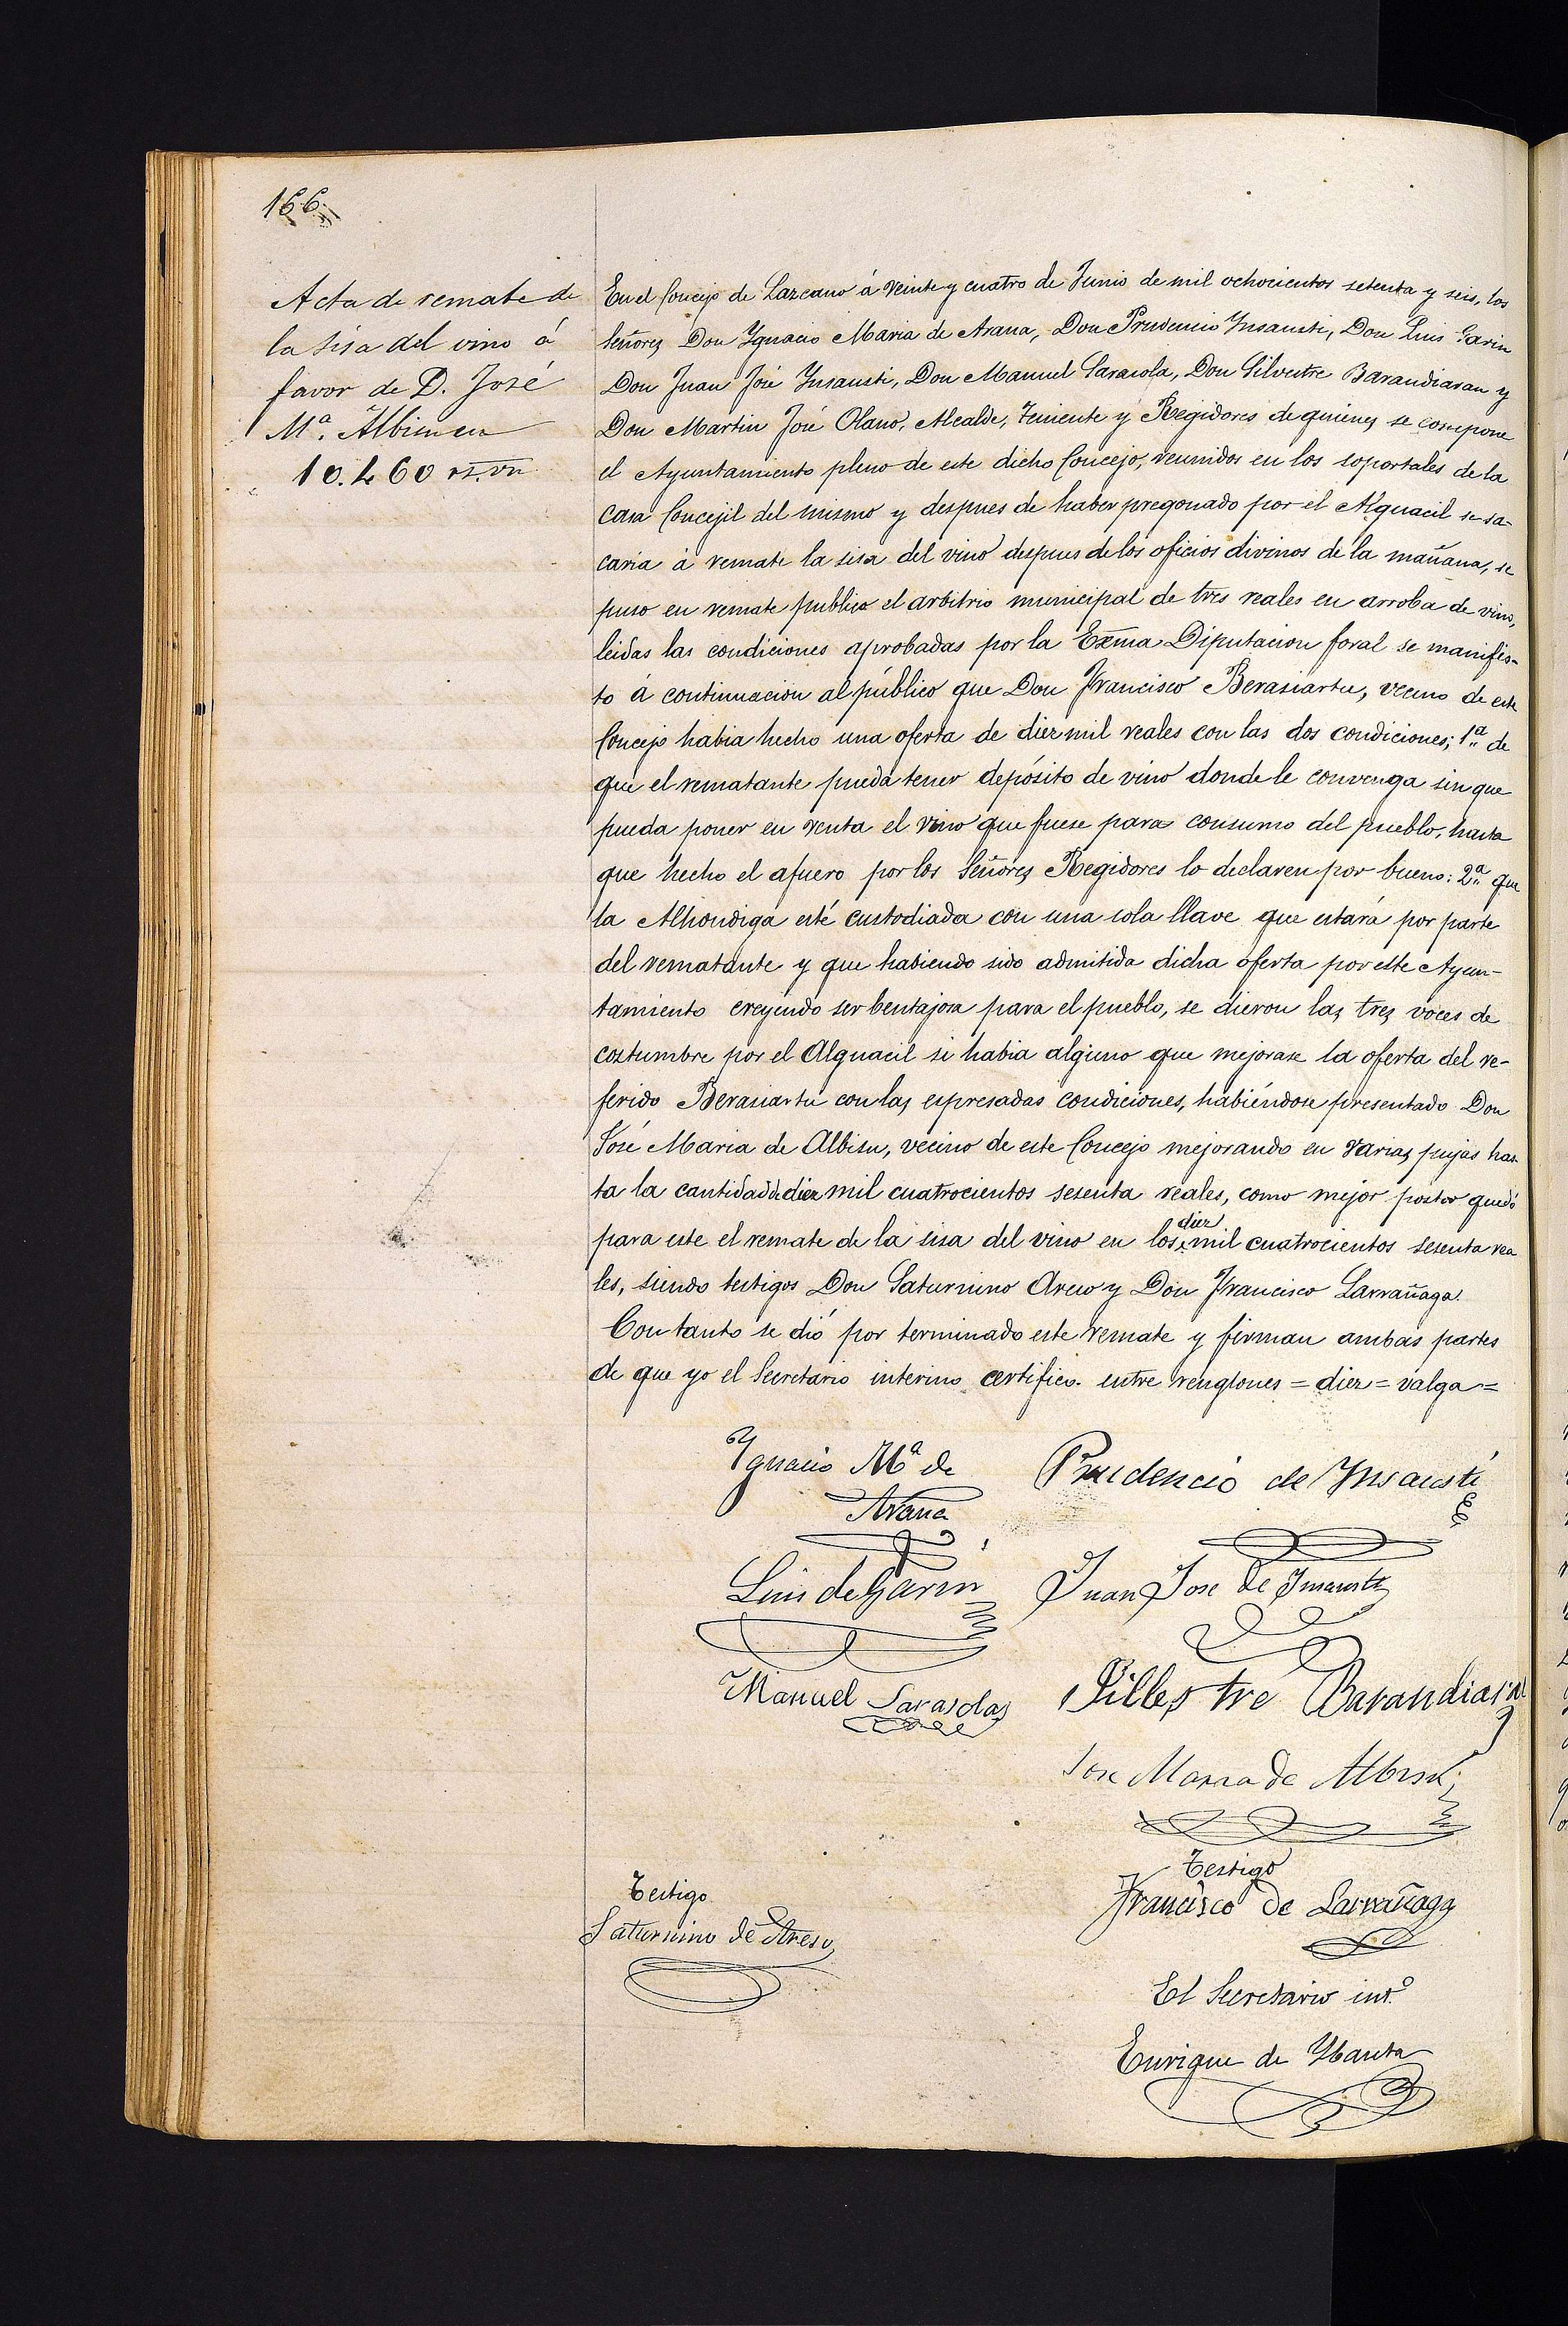 166
Acta de remate de
la sisa del vino á
favor de D. José
Mª. Albisu en
10.460 rs. vn
En el Concejo de Lazcano á veinte y cuatro de Junio de mil ochocientos setenta y seis, los
Señores Don Ygnacio Maria de Arana, Don Prudencio Ynsausti, Don Luis Garin
Don Juan José Ynsausti, Don Manuel Sarasola, Don Silvestre Barandiaran y
Don Martin José Olano, Alcalde, Teniente y Regidores de quienes se compone
el Ayuntamiento pleno de este dicho Concejo, reunidos en los soportales de la
casa Concejil del mismo y despues de haber pregonado por el Alguacil se sa-
caria á remate la sisa del vino despues de los oficios divinos de la mañana, se
puso en remate publico el arbitrio municipal de tres reales en arroba de vino,
leidas las condiciones aprobadas por la Exma Diputacion foral se manifes-
to á continuacion al público que Don Francisco Berasiartu, vecino de este
Concejo habia hecho una oferta de diez mil reales con las dos condiciones; 1ª de
que el rematante pueda tener depósito de vino donde le convenga sin que
pueda poner en venta el vino que fuese para consumo del pueblo, hasta
que hecho el afuero por los Señores Regidores lo declaren por bueno: 2ª que
la Alhondiga esté custodiada con una sola llave que estará por parte
del rematante y que habiendo sido admitida dicha oferta por este Ayun-
tamiento creyendo ser bentajosa para el pueblo, se dieron las tres voces de
costumbre por el Alguacil si habia alguno que mejorase la oferta del re-
ferido Berasiartu con las espresadas condiciones, habiéndose presentado Don
José Maria de Albisu, vecino de este Concejo mejorando en varias pujas has-
ta la cantidad de diez mil cuatrocientos sesenta reales, como mejor postor quedó
diez
para este el remate de la sisa del vino en los mil cuatrocientos sesenta rea
les, siendo testigos Don Saturnino Areso y Don Francisco Larrañaga.
Con tanto se dió por terminado este remate y firman ambas partes
de que yo el Secretario interino certifico. entre renglones = diez = valga =
Ygnacio Mª de
Arana
Prudencio de Ynsausti
Luis de Garin
Juan Jose de Insausti
Manuel Sarasola
Sillestre Barandiaran
Jose Maria de Albisu
Testigo
Francisco de Larrañaga
Testigo
Saturnino de Areso
El Secretario intº
Enrique de